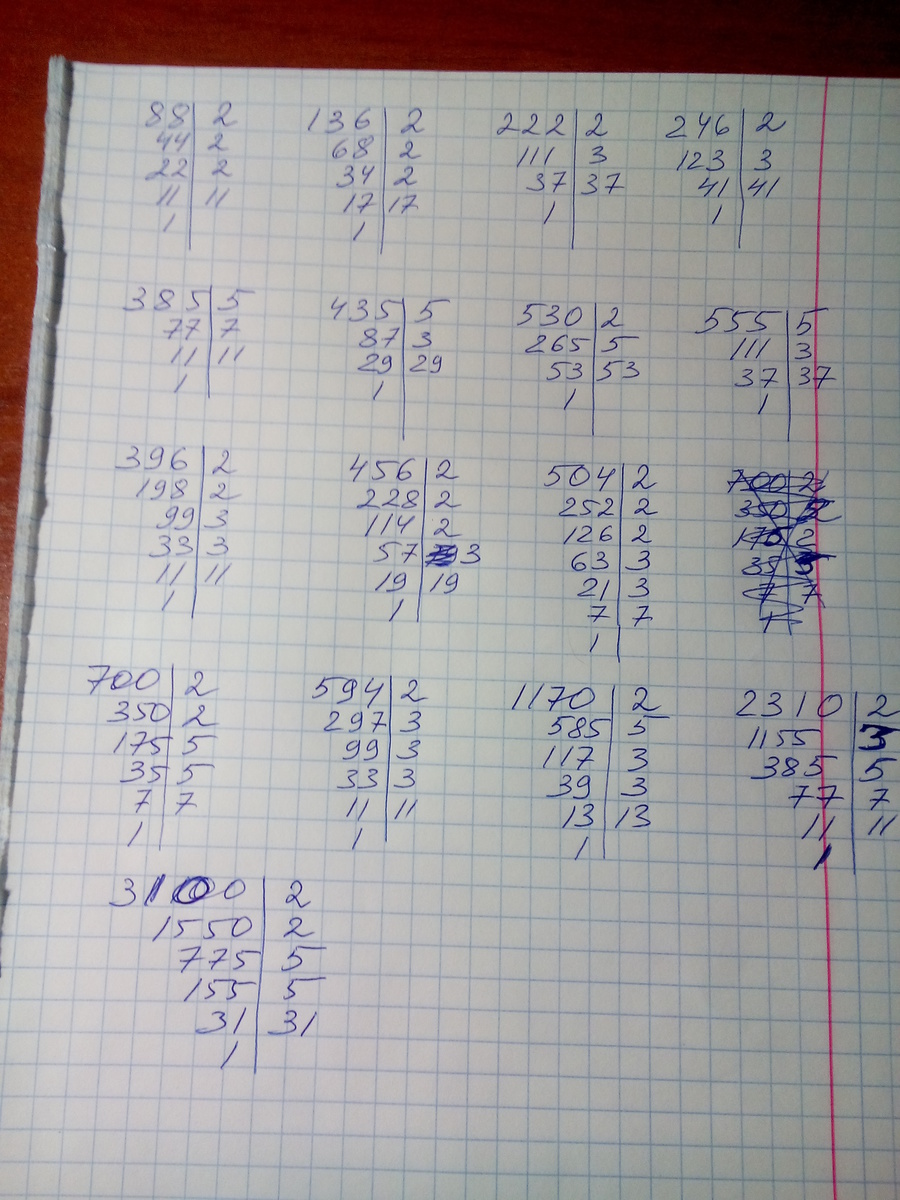 88 2
44 2
22 2
11 11
1
136 2
68 2
34 2
17 17
1
222 2
111 3
37 37
1
246 2
123 3
41 41
1
385 5
77 7
11 11
1
435 5
87 3
29 29
1
530 2
265 5
53 53
1
555 5
111 3
37 37
1
396 2
198 2
99 3
33 3
11 11
1
456 2
228 2
114 2
57 3
19 19
1
504 2
252 2
126 2
63 3
21 3
7 7
1
700 2
350 2
175 5
35 5
7 7
1
594 2
297 3
99 3
33 3
11 11
1
1170 2
585 5
117 3
39 3
13 13
1
2310 2
1155 3
385 5
77 7
11 11
1
3100 2
1550 2
775 5
155 5
31 31
1